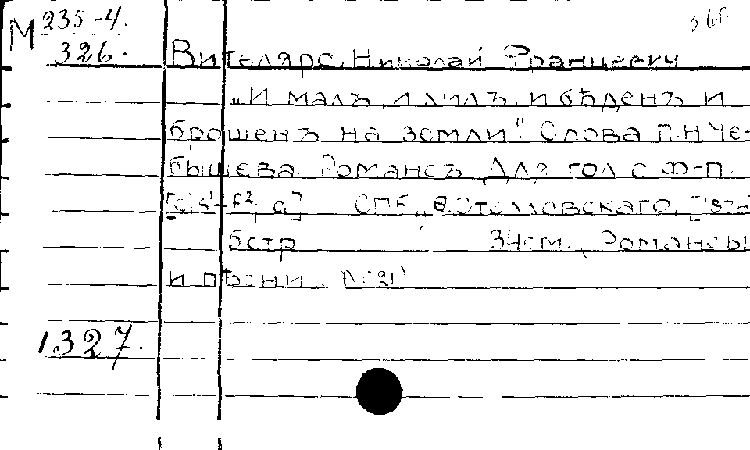 М 235-4.
326.
Вителяро, Николай Францевич
„И малъ и хилъ, и бѣденъ и
брошенъ на земли". Слова П.Н Че-
бышева Романсъ Для гол с ф-п.
СПб „ Ѳ. Стелловскаго,
6 стр 34 см. „Романсы
и пѣсни
1327.